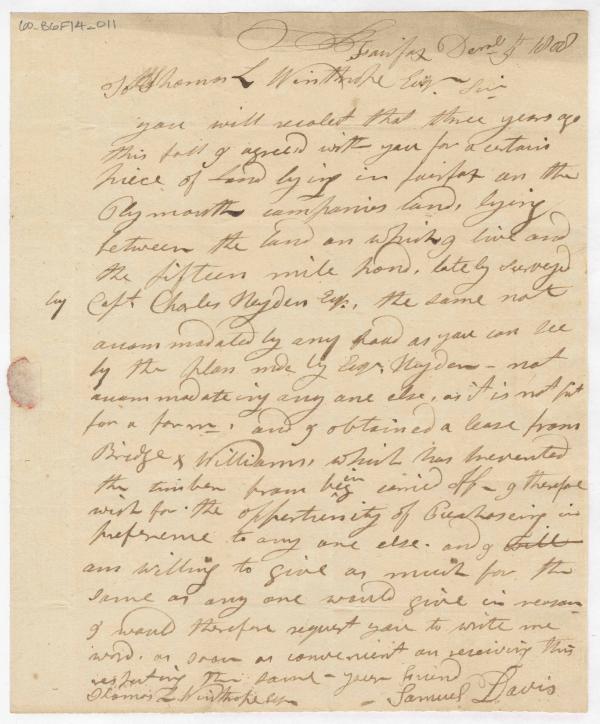 60-B6F14-011
Fairfax Decm 5th 1808
To Thomas L Winthrope Esqr Sir
you will recolect that three years ago
this fall I agreed with you for a certain
piece of land lying in fairfax on the
Plymouth companies land, lying
between the land on which I live and
the fifteen mile pond, lately surveyd
by Capt Charles Hayden Esqr, the same not
accommodated by any road as you can see
by the plan mde by Esqr Hayden - not
accommodateing any one else, as it is not fit
for a farm, and I obtained a lease from
Bridge & Williams, which has prevented
the timber from being carried off - I therefore
wish for the oppertunity of Purchaseing in
preference to any one else. and I will
am willing to give as much for the
same as any one would give in reason
I would therefore request you to write me
word, as soon as convenient on receiving this
respecting the same - your friend
Thomas L Winthrope Esqr - Samuel Davis